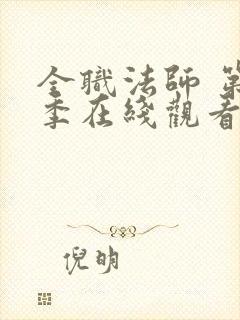 全職法師 第
季在綫觀看
倪明